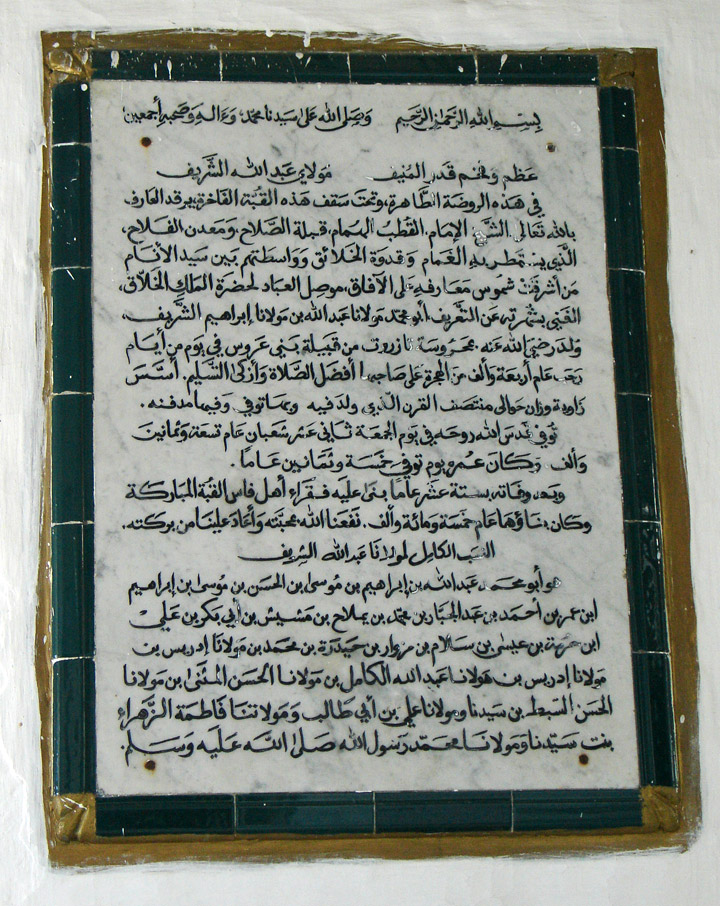 بِسْمِ اللهِ الرَّحْمَٰنِ الرَّحِيمِ وَصَلَّى اللهُ عَلَى سَيِّدِنَا مُحَمَّدٍ وَءَالِهِ وَصَحْبِهِ أَجْمَعِينَ
عَظِّمْ وَفَخِّمْ قَدرَ المُنِيف مَوْلَاي عَبد الله الشَّرِيف
في هَذه الروضَة الطَّاهرة، وتحت سَقف هَذه القُبَّة الفَاخرة، يرقد العَارف
بالله تَعَالى الشَّيخ الإمَام، القُطب الهُمَام، قبلة الصَّلاح، وَمَعدن الفَلاح،
الَّذي يستمطر به الغَمام وَقدوَة الخَلائق وَوَاسطَتهم بَين سَيد الأنَام
مَن أشرقَت شموس مَعَارفه عَلى الآفاق، موصل العبَاد لحَضرَة المَلك الخَلَّاق،
الغَني بشهرته عَن التَّعريف، أبو محمد مَولانَا عَبد الله بن مَولانَا إبراهيم الشَّريف،
وُلدَ رَضيَ الله عَنه بمحرُوسَة تازروت من قَبيلة بَني عَروس في يَوم من أيَّام
رَجَب عَام أربَعَة وَألف منَ الهجرة عَلى صَاحبهَا أفضَل الصَّلاة وَأزكَى التَّسليم. أسَّسَ
زَاوية وزان حَوالى منتصَف القَرن الَّذي ولدَ فيه وبها توفي وَفيها مدفنه.
تُوفيَ قَدسَ الله روحَه في يَوم الجمعَة ثَاني عَشر شَعبَان عَام تسعَة وَثمَانينَ
وَألف وَكانَ عمره يَوم توفي خَمسَة وَثَمَانينَ عَامًا.
وَبَعدَ وفَاته بستَّة عَشَر عَامًا بنى عَليه فقَرَاء أهل فَاس القُبَّة المبَاركَة
وَكَان بنَاؤهَا عَام خَمسَة وَمائَة وَألف. نَفَعَنا الله بمحَبَّته وَأعَادَ عَلينَا من بركته.
النَّسَب الكَامل لمولانَا عَبد الله الشريف
هوَ أبو محَمَد عَبد الله بن إبرَاهيم بن مُوسَى بن الحَسَن بن مُوسَى ابن إبراهيم
ابن عمر بن أحمَد بن عَبد الجَبَّار بن محمد بن يملاح بن مَشيش بن أبي بَكر بن عَلي
ابن حرمَة بن عيسَى بن سَلام بن مزوار بن حَيدَرَة بن محمَد بن مَولانَا إدريس بن
مَولانَا إدريس بن مَولانَا عَبد الله الكَامل بن مَولانَا الحَسَن المثَنَّى بن مَولانَا
الحَسَن السّبط بن سَيدنَا وَمَولانَا عَلي بن أبي طَالب وَمَولاتنَا فَاطمَة الزَّهراء
بنت سَيّدنَا وَمَولانَا محَمَّد رَسول الله صَلى اللهُ عَلَيه وَسَلم.